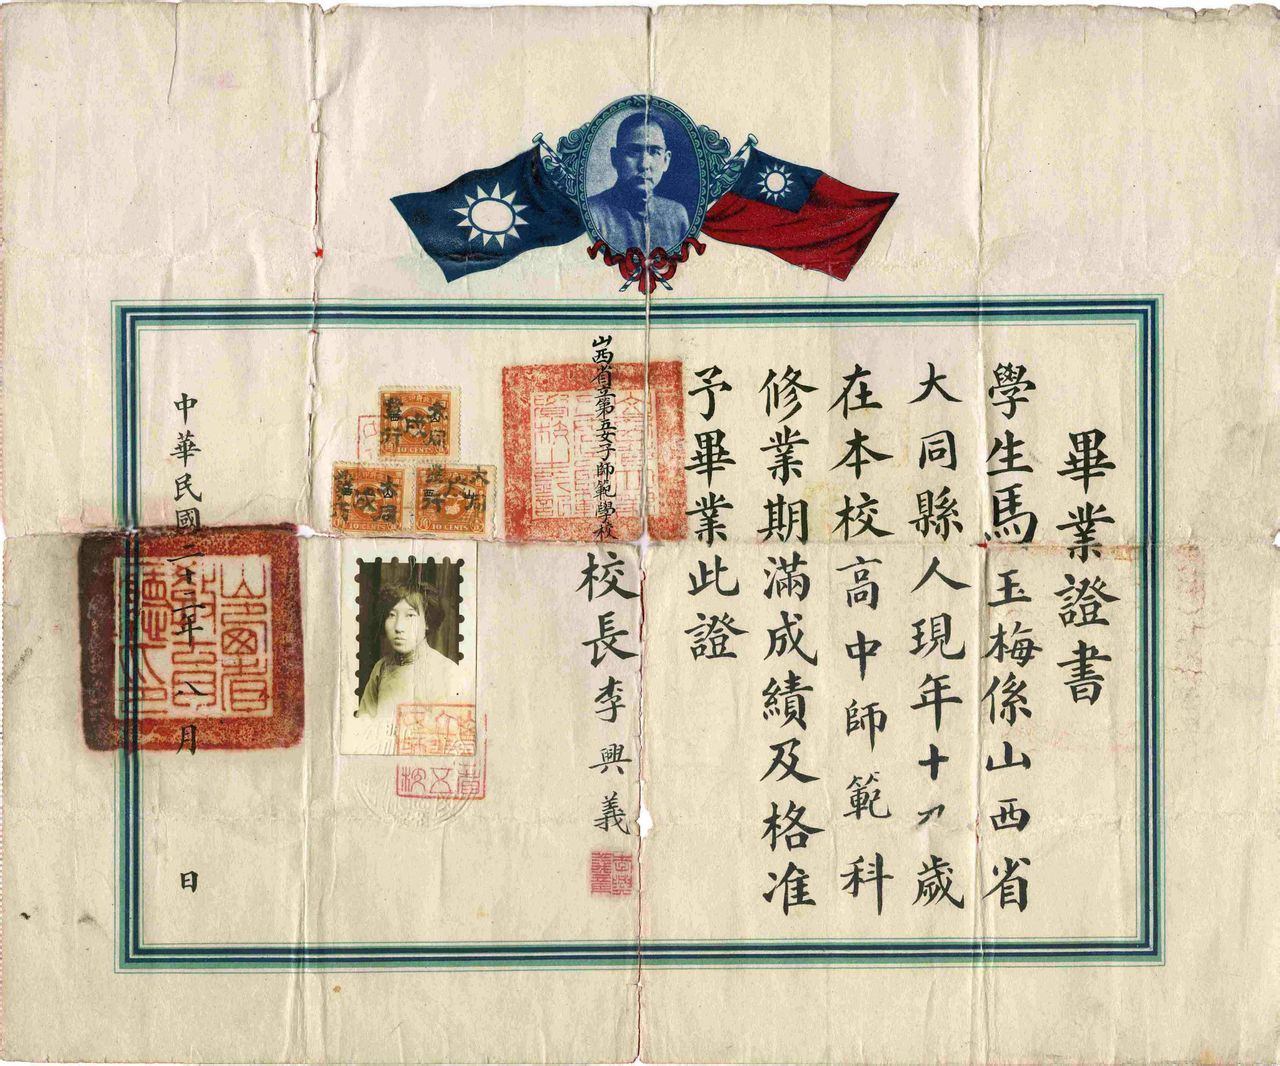 畢業證書
學生馬玉梅係山西省
大同縣人現年十九歲
在本校高中師範科
修業期滿成績及格准
予畢業此證
山西省立第五女子師範學校
校長李興義
10 CENTS
10 CENTS
10 CENTS
中華民國二十二年八月 日
山西省教育廳之印